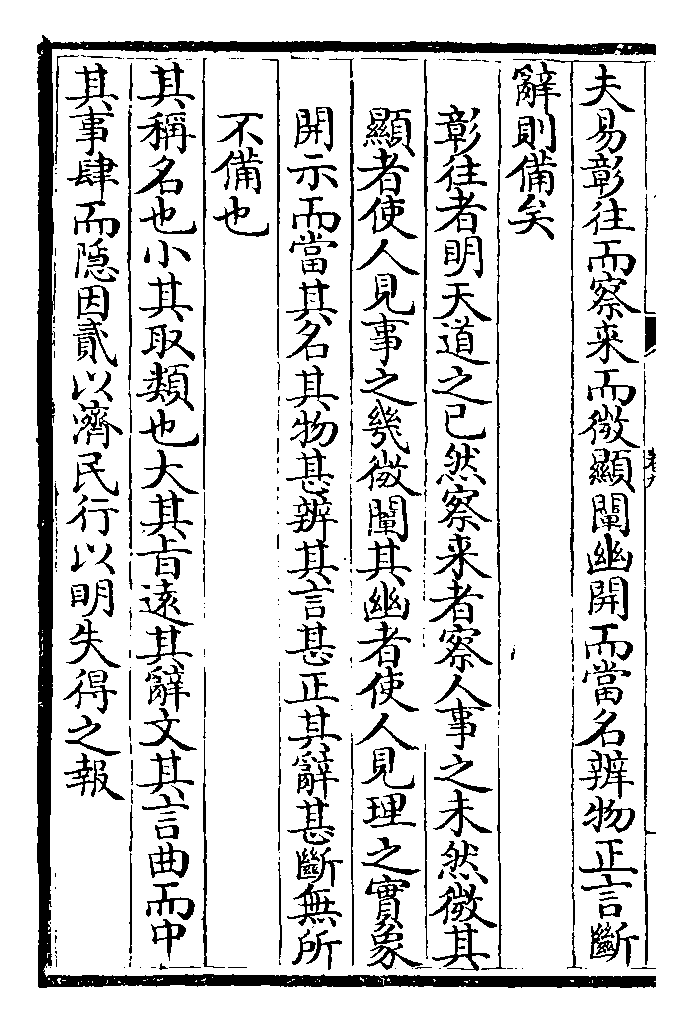 夫易彰往而察来而微顯闡幽開而當名辨物正言斷
辭則備矣
彰往者明天道之已然察来者察人事之未然微其
顯者使人見事之幾微闡其幽者使人見理之實象
開示而當其名其物甚辨其言甚正其辭甚斷無所
不備也
其稱名也小其取類也大其旨遠其辭文其言曲而中
其事肆而隱因貳以濟民行以明失得之報